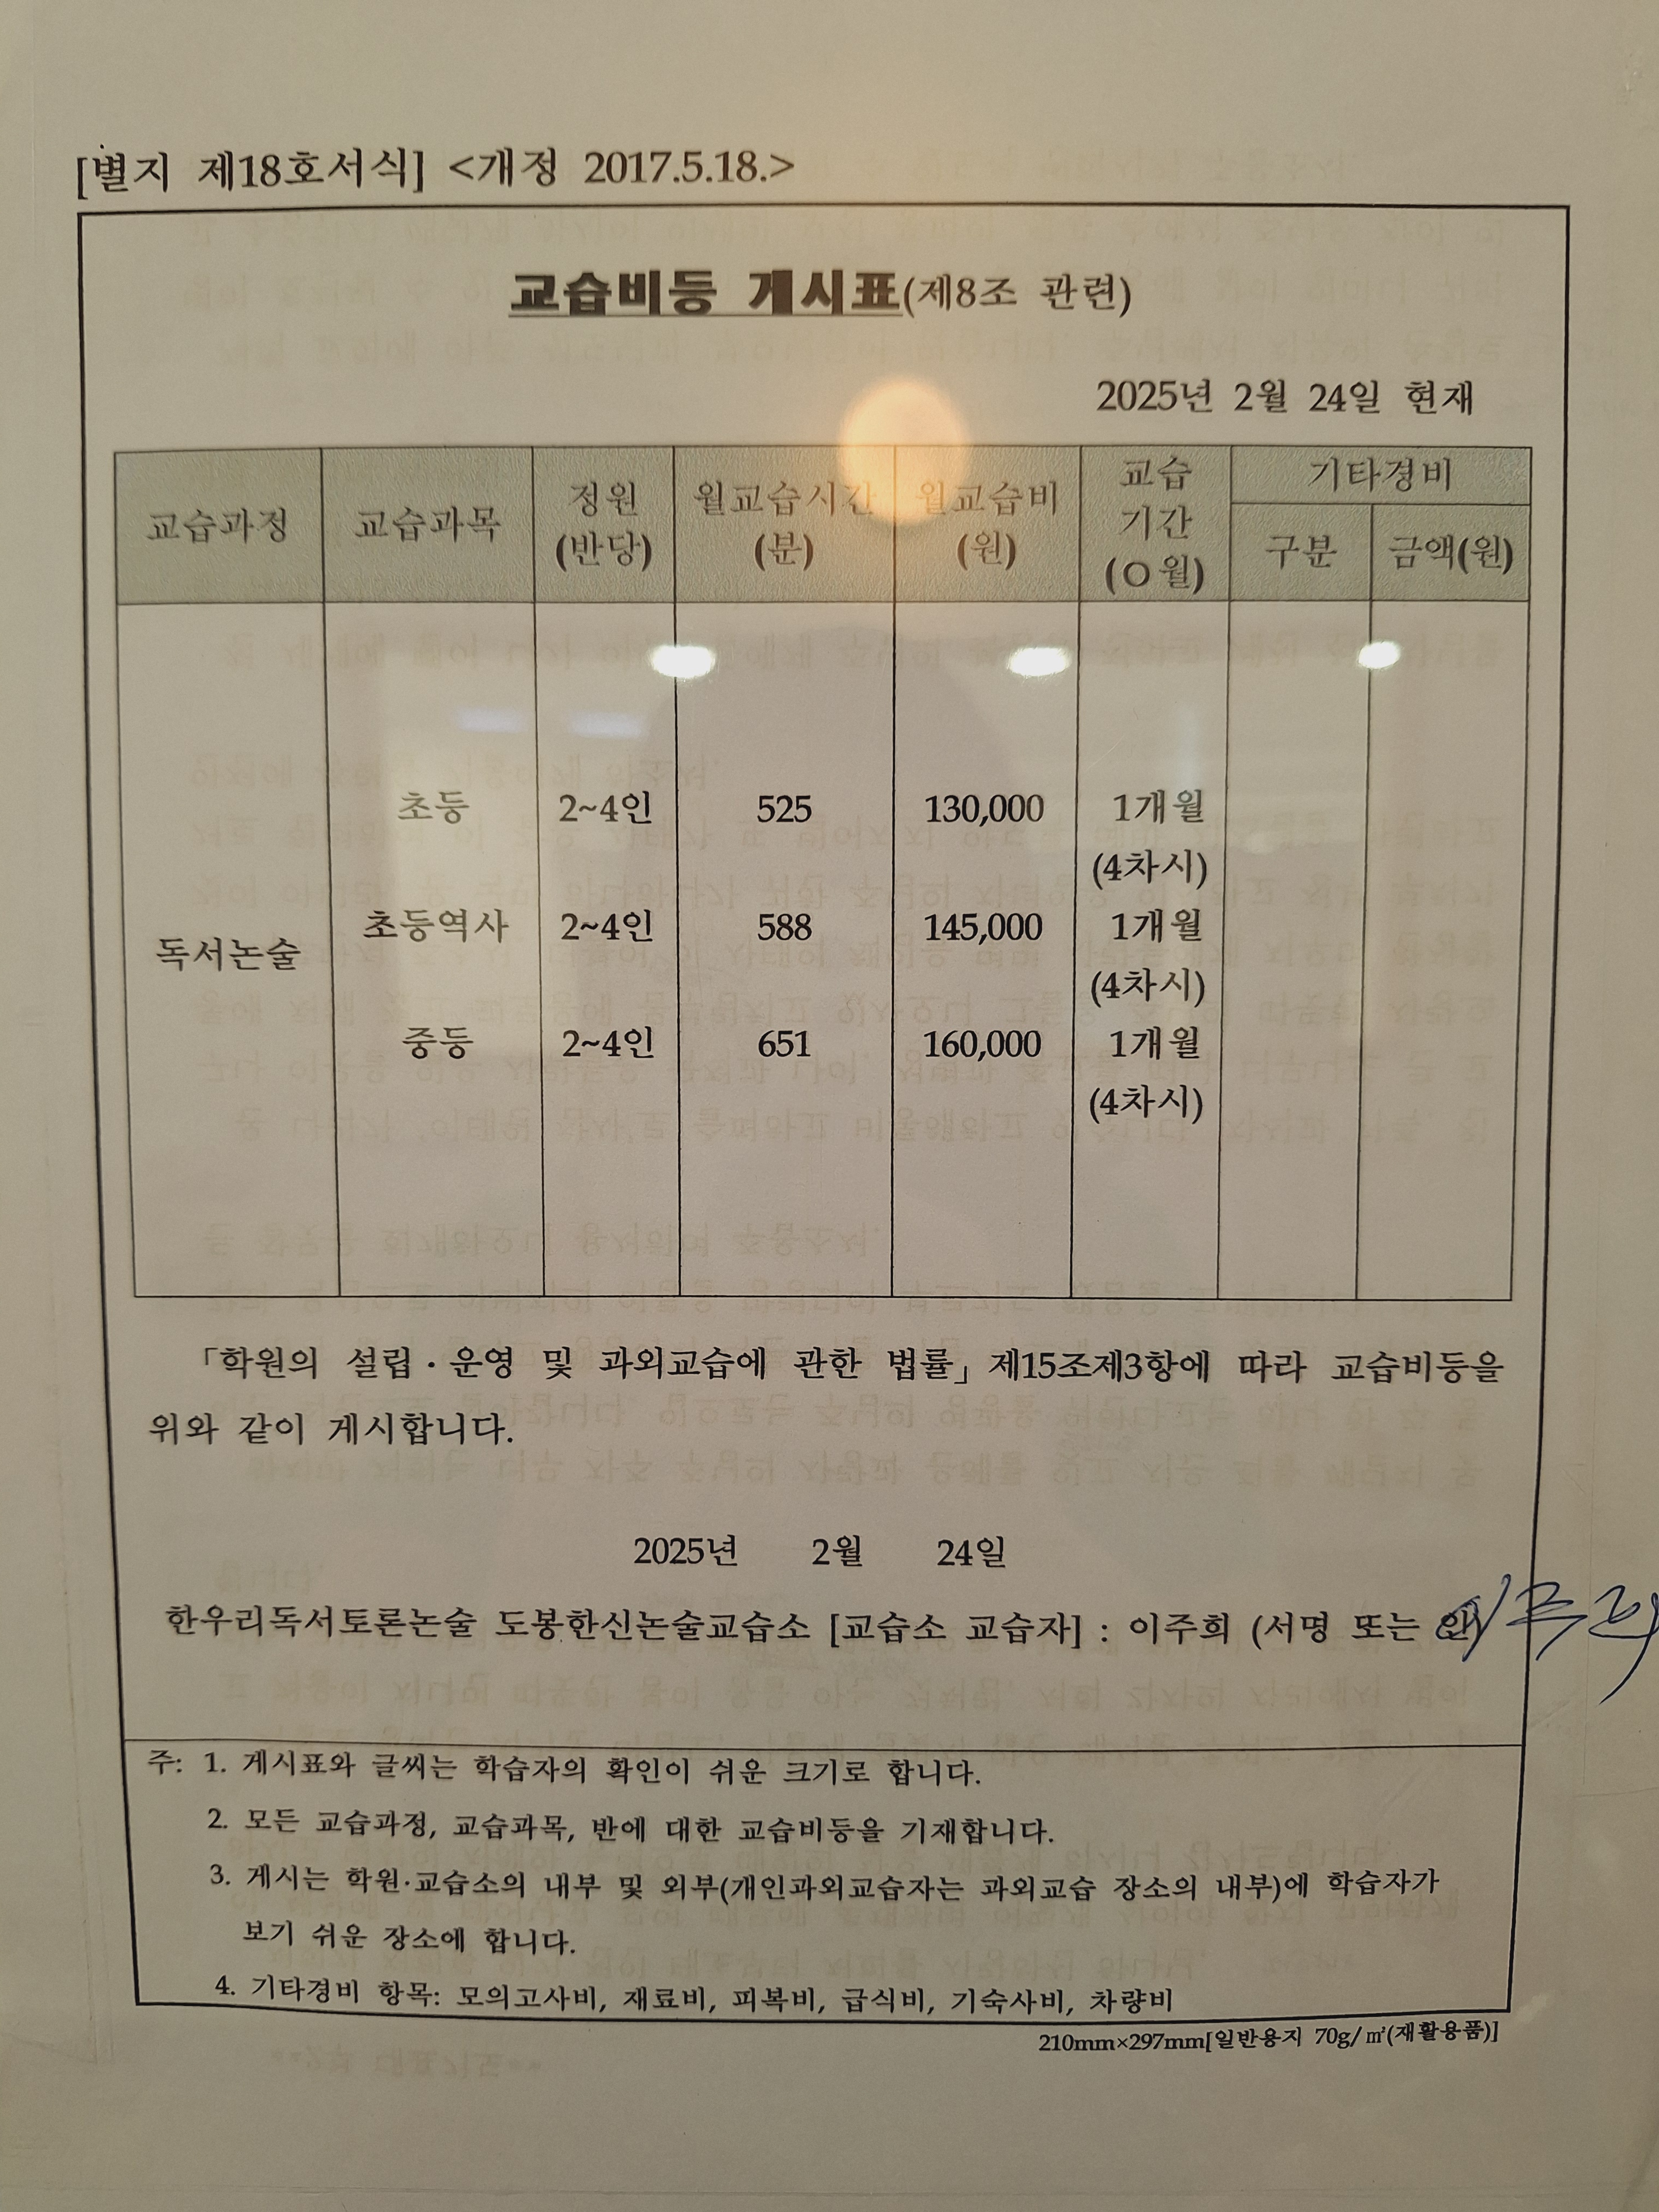 [별지 제18호서식] <개정 2017.5.18.>
교습비등 게시표(제8조 관련)
2025년 2월 24일 현재
교습과정 교습과목 정원 (반당) 월교습시간 (분) 월교습비 (원) 교습 기간 (O월) 기타경비
구분 금액(원)
독서논술
초등 2~4인 525 130,000 1개월
(4차시)
초등역사 2~4인 588 145,000 1개월
(4차시)
중등 2~4인 651 160,000 1개월
(4차시)
「학원의 설립·운영 및 과외교습에 관한 법률」제15조제3항에 따라 교습비등을
위와 같이 게시합니다.
2025년 2월 24일
한우리독서토론논술 도봉한신논술교습소 [교습소 교습자] : 이주희 (서명 또는 인) 이주희
주: 1. 게시표와 글씨는 학습자의 확인이 쉬운 크기로 합니다.
2. 모든 교습과정, 교습과목, 반에 대한 교습비등을 기재합니다.
3. 게시는 학원·교습소의 내부 및 외부(개인과외교습자는 과외교습 장소의 내부)에 학습자가
보기 쉬운 장소에 합니다.
4. 기타경비 항목: 모의고사비, 재료비, 피복비, 급식비, 기숙사비, 차량비
210mm×297mm[일반용지 70g/㎡(재활용품)]